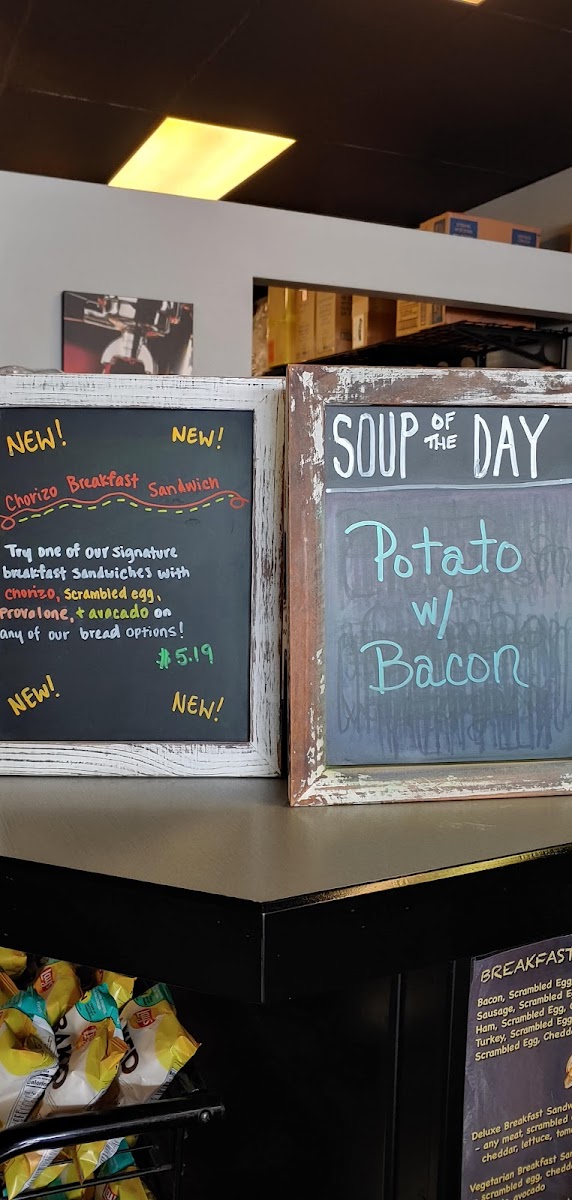 NEW!
NEW!
Chorizo Breakfast Sandwich
Try one of our signature
breakfast sandwiches with
chorizo, scrambled egg,
provalone, + avocado on
any of our bread options!
$5.19
NEW!
NEW!
SOUP OF THE DAY
Potato
w/
Bacon
BREAKFAST
Bacon, Scrambled Egg
Sausage, Scrambled
Ham, Scrambled Egg,
Turkey, Scrambled Egg
Scrambled Egg, Chedd
Deluxe Breakfast Sandw
- any meat, scrambled
cheddar, lettuce, tom
Vegetarian Breakfast San
- scrambled egg, chedd
avocado